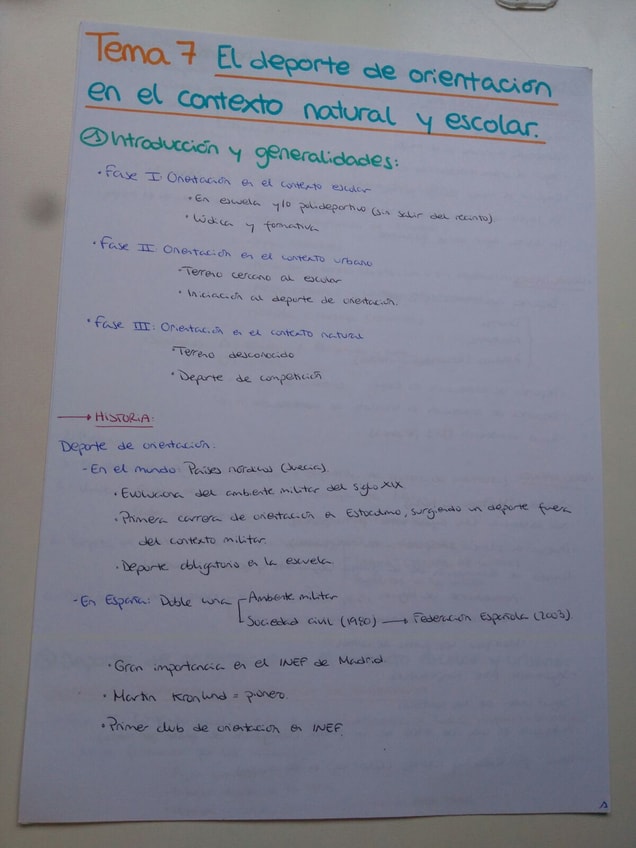 Tema 7 El deporte de orientación
en el contexto natural y escolar.
① Introducción y generalidades:
· Fase I: Orientación en el contexto escolar
· En escuela y/o polideportivo (sin salir del recinto)
· Lúdica y formativa
· Fase II: Orientación en el contexto urbano
· Terreno cercano al escolar
· Iniciación al deporte de orientación.
· Fase III: Orientación en el contexto natural
· Terreno desconocido
· Deporte de competición
→ HISTORIA:
Deporte de orientación:
- En el mundo: Países nórdicos (Suecia).
· Evoluciona del ambiente militar del siglo XIX
· Primera carrera de orientación en Estocolmo, surgiendo un deporte fuera
del contexto militar.
· Deporte obligatorio en la escuela
- En España: Doble cuna Ambiente militar
Sociedad civil (1980) → Federación Española (2003)
· Gran importancia en el INEF de Madrid.
· Martin Kronlund = pionero.
· Primer club de orientación en INEF.
1